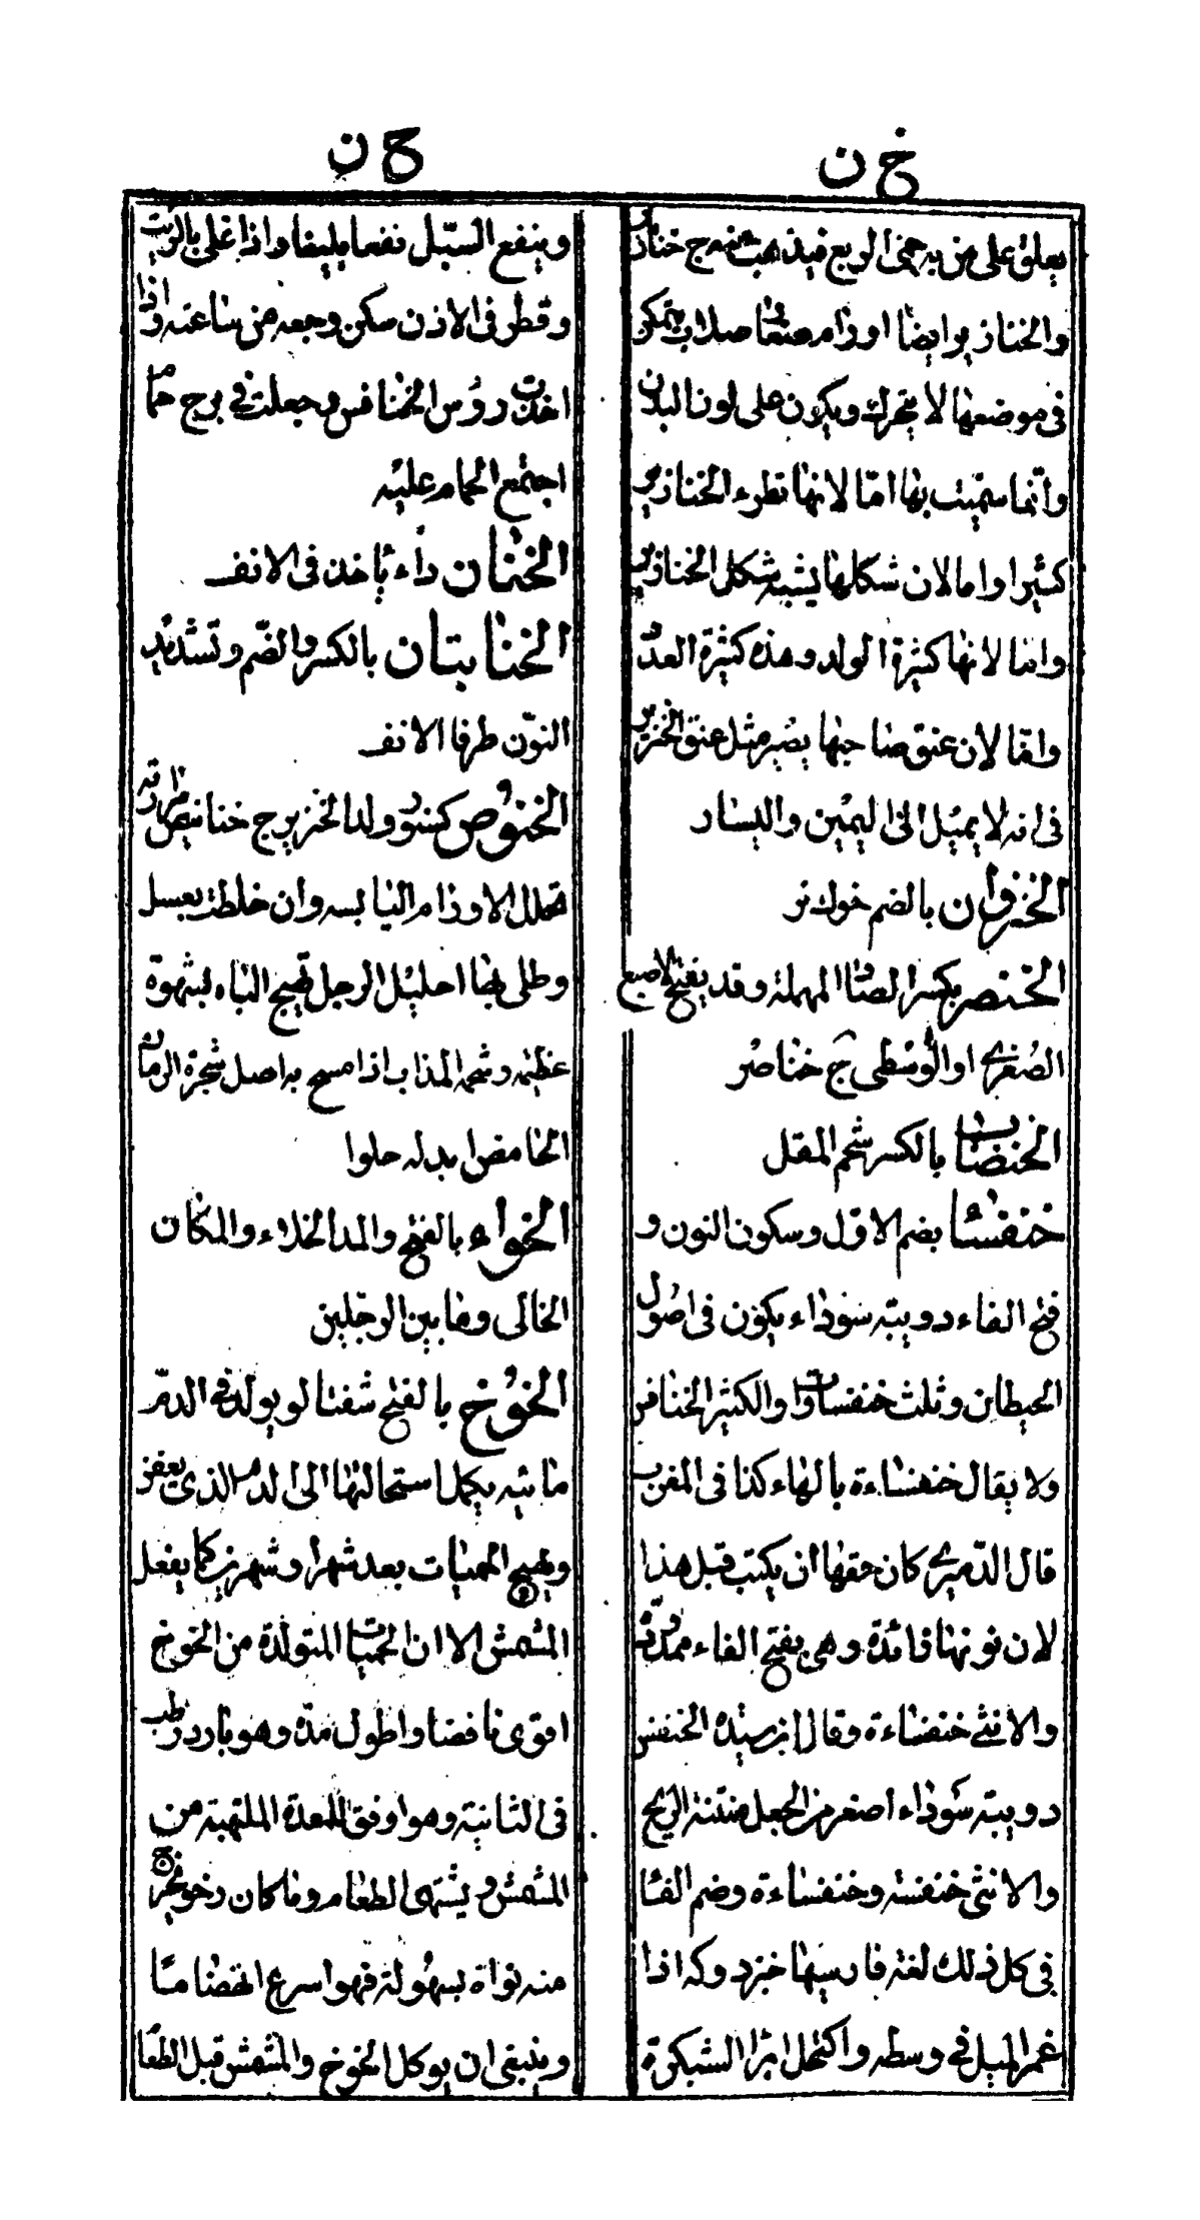 خ ن
يعلق على من به حمى الربع فيذهب عنه ج خنازير
والخنازير ايضا اورام صلاب تتمكن
فى موضعها لا يتحرك ويكون على لون البدن
وانما سميت بها اما لانها تطرء الخنازير
كثيرا واما لان شكلها يشبه شكل الخنازير
واما لانها كثيرة الولد وهذه كثيرة العدد
واما لان عنق صاحبها يصير مثل عنق الخنزير
فى انه لا يميل الى اليمين واليسار
الخنزوان بالضم خوك نر
الخنصر بكسر الصاد المهملة وقد يفتح الاصبع
الصغرى او الوسطى ج خناصر
بالكسر شحم المقل
خنفساء بضم الاول وسكون النون و
فتح الفاء دويبه سوداء يكون فى اصول
الحيطان وثلث خنفساوات والكثير الخنافس
ولا يقال خنفساءة بالهاء كذا فى المغرب
قال الدميرى كان حقها ان يكتب قبل هذا
لان نونها زائدة وهى بفتح الفاء ممدودة
والانثى خنفساءة وقال ابن سيده الخنفس
دويبه سوداء اصغر من الجعل منتنة الريح
والانثى خنفسة وخنفساءة وضم الفاء
فى كل ذلك لغة فارسيها خبزدوكه اذا
غمر الميل فى وسطه واكتحل ابرا الشبكرة
خ ن
وينفع السبل نفعا بليغا واذا غلى بالزيت
وقطر فى الاذن سكن وجعه من ساعته واذا
اخذت رؤس الخنافس وجعلت فى برج حمام
اجتمع الحمام عليه
الخنان داء ياخذ فى الانف
الخنابتان بالكسر والضم وتشديد
النون طرفا الانف
الخنوص كسنور ولد الخنزير ج خنانيص مرارته
تحلل الاورام اليابسه وان خلطت بعسل
وطلى بها احليل الرجل تهيج الباه لشهوة
عظيمه وشحمه المذاب اذا مسح به اصل شجرة الرمان
الحامض ابدله حلوا
الخواء بالفتح والمد الخلاء والمكان
الخالى وما بين الرجلين
الخوخ بالفتح شفتالو يولد فى الدم
مائيه يكمل استحالتها الى الدم الذى يعفن
ويهيج الحميات بعد شهرا وشهرين كما يفعل
المشمش الا ان الحميات المتولدة من الخوخ
اقوى نافضا واطول مدة وهو بارد رطب
فى الثانية وهو اوفق للمعدة الملتهبة من
المشمش ويشتهى الطعام وما كان رخو يخرج
منه نواة بسهولة فهو اسرع انهضاما
وينبغى ان يوكل الخوخ والمشمش قبل الطعام